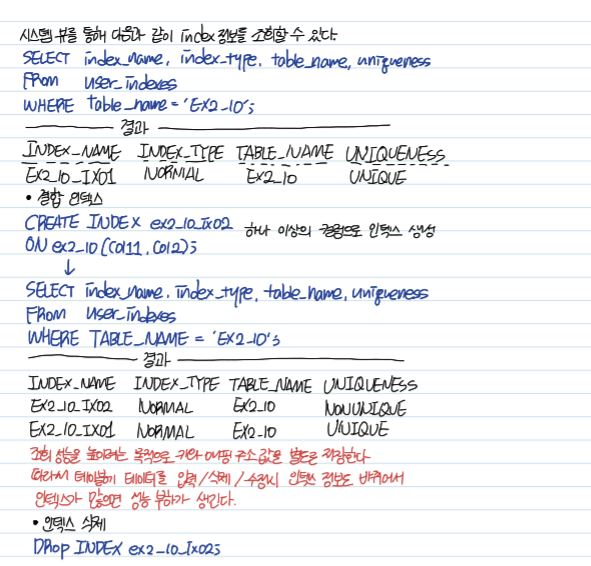 시스템 뷰를 통해 다음과 같이 index 정보를 조회할 수 있다.
SELECT index_name, index_type, table_name, uniqueness
FROM user_indexes
WHERE table_name = 'EX2_10';
결과
INDEX_NAME INDEX_TYPE TABLE_NAME UNIQUENESS
EX2_10_IX01 NORMAL EX2_10 UNIQUE
• 결합 인덱스
CREATE INDEX ex2_10_IX02 하나 이상의 컬럼으로 인덱스 생성
ON ex2_10 (Col1, Col2);
↓
SELECT index_name, index_type, table_name, uniqueness
FROM user_indexes
WHERE TABLE_NAME = 'EX2_10';
결과
INDEX_NAME INDEX_TYPE TABLE_NAME UNIQUENESS
EX2_10_IX02 NORMAL EX2_10 NONUNIQUE
EX2_10_IX01 NORMAL EX2_10 UNIQUE
조회 성능을 높이려는 목적으로 키와 매핑 주소 값을 별도로 저장한다
따라서 테이블에 데이터를 입력/삭제/수정시 인덱스 정보도 바뀌어서
인덱스가 많으면 성능 부하가 생긴다.
• 인덱스 삭제
DROP INDEX ex2_10_IX02;